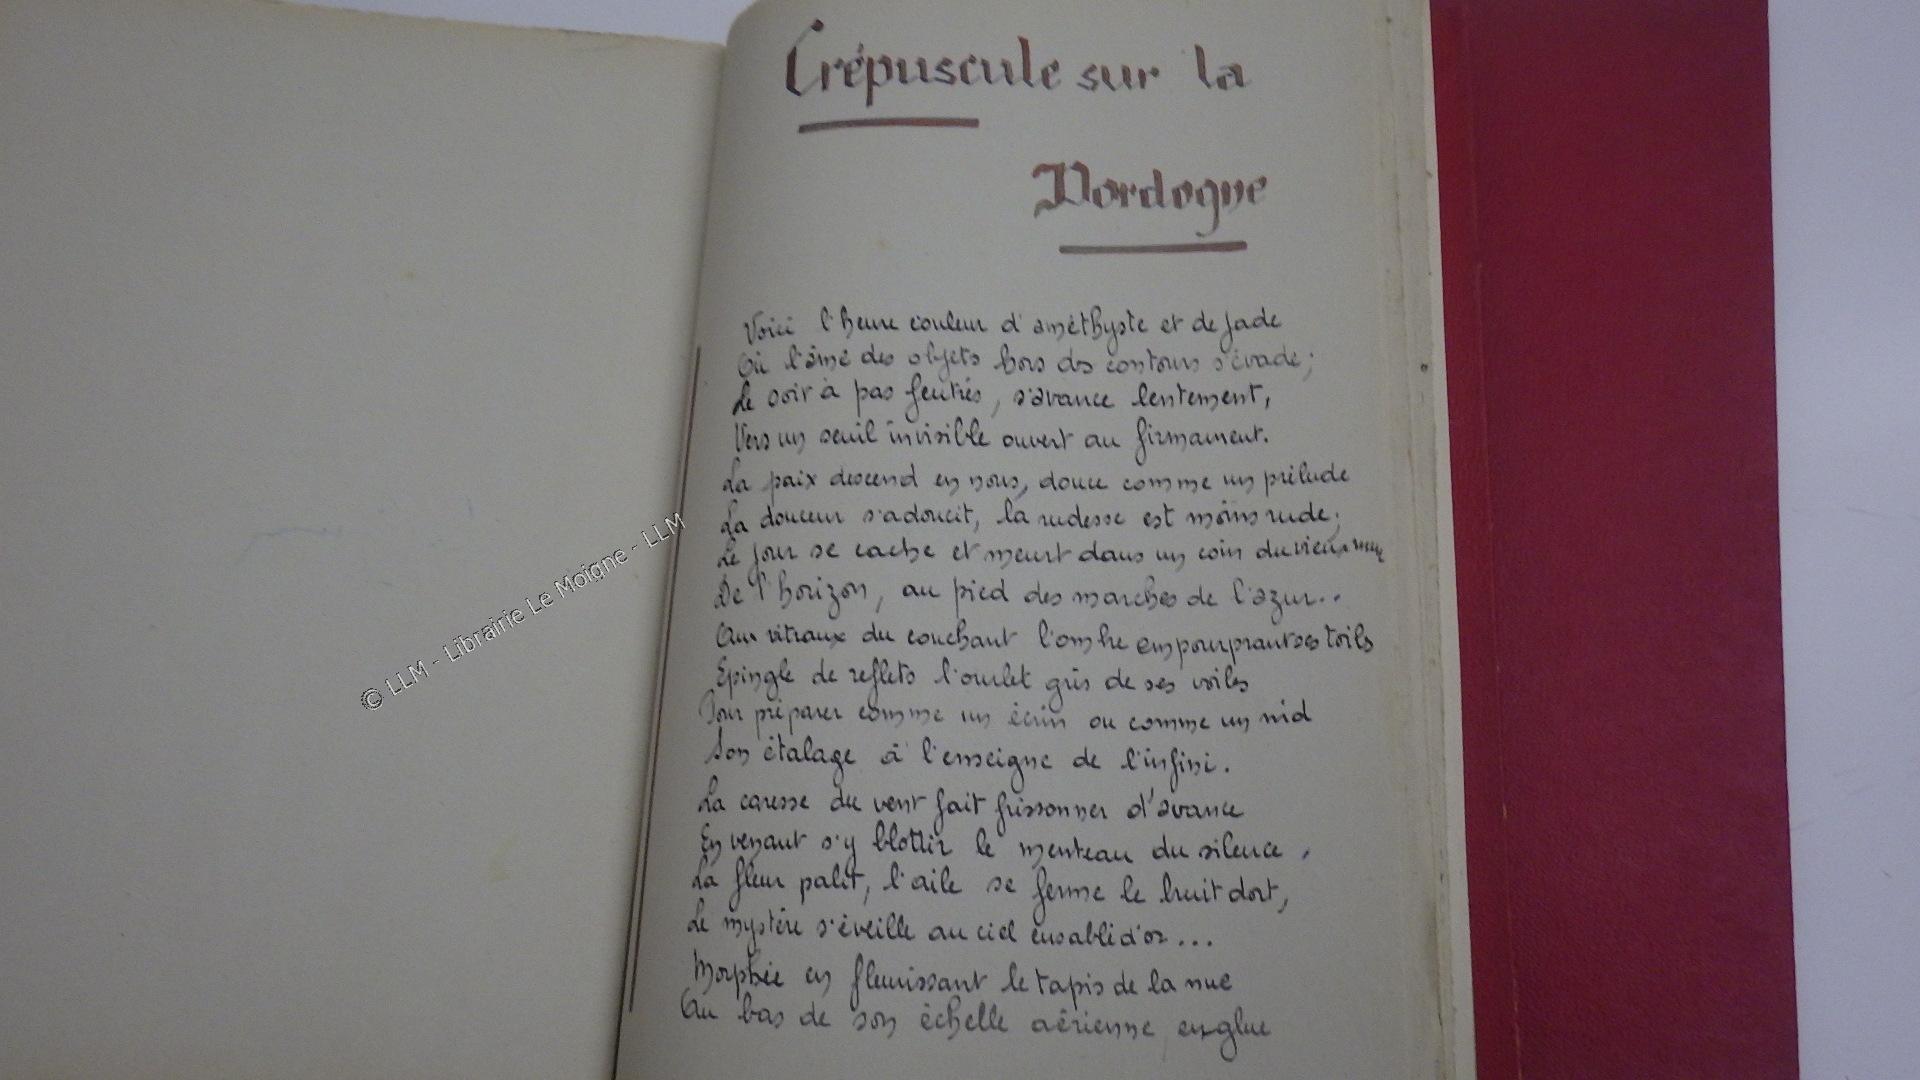 Crépuscule sur la
Dordogne
Voici l'heure couleur d'améthyste et de jade
Où l'âme des objets hors des contours s'évade;
Le soir à pas feutrés, s'avance lentement,
Vers un seuil invisible ouvert au firmament.
La paix descend en nous, douce comme un prélude
La douceur s'adoucit, la rudesse est moins rude;
Le jour se cache et meurt dans un coin du vieux mur
De l'horizon, au pied des marches de l'azur..
Aux vitraux du couchant l'ombre empourprant ses toils
Epingle de reflets l'ourlet gris de ses voiles
Pour préparer comme un écrin ou comme un nid
Son étalage à l'enseigne de l'infini.
La caresse du vent fait frissonner d'avance
En venant s'y blottir le menteau du silence,
La fleur palit, l'aile se ferme le bruit dort,
Le mystère s'éveille au ciel ensablé d'or...
Morphée en fleurissant le tapis de la nue
Au bas de son échelle aérienne,
© LLM - Librairie Le Moigne - LLM